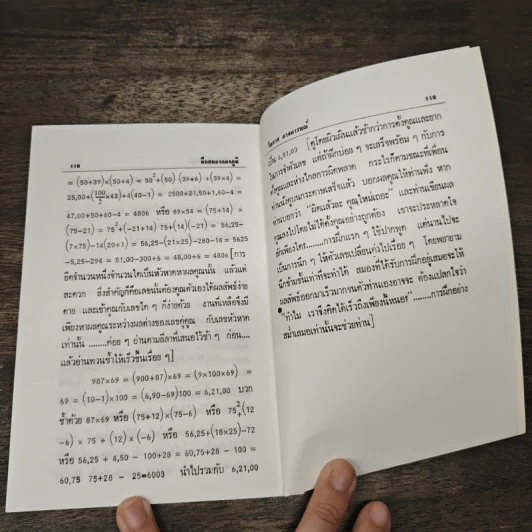 118 ฝึกสมองลองภูมิ
= (50+39)×(50+4) = 50²+(50) (39+6) +(39×4) =
25,00+(100/2 ×43)+4(40-1) = 2500+21,50+1,60-4 =
47,00+50+60-4 = 4806 หรือ 89×54 = (75+14) ×
(75-21) = 75²+(-21+14) 75+(14)(-21) = 56,25-
(7×75)-14(20+1) = 56,25-(21×25)-280-14 = 5625
-5,25-294 = 51,00-300+6 = 48,00+6 = 4806 [การ
ยึดจำนวนหนึ่งจำนวนใดเป็นหัวหาคหาผลคูณนั้น แล้วแต่
สะดวก สิ่งสำคัญก็คือเลขนั้นต้องคูณตัวเองได้ผลลัพธ์ง่าย
ดาย และเข้าคูณกับเลขใด ๆ ก็ง่ายด้วย งานที่เหลือจึงมี
เพียงหาผลคูณระหว่างผลต่างของเลขคู่คูณ กับเลขหัวหาค
เท่านั้น ........ค่อย ๆ อ่านตามลีลาที่เสนอไว้ช้า ๆ ก่อน....
แล้วอ่านทวนซ้ำให้เร็วขึ้นเรื่อย ๆ]
987×69 = (900+87)×69 = (9×100×69) =
69 = (10-1)×100 = (6,90-69)100 = 6,21,00 บวก
ซ้ำด้วย 87×69 หรือ (75+12)×(75-6) หรือ 75²+(12
-6) × 75 + (12)×(-6) หรือ 56,25+(18×25)-72
หรือ 56,25 + 4,50 - 100+28 = 60,75+28 - 100 =
60,75 75+28 - 25=6003 นำไปรวมกับ 6,21,00
โอภาส 119
เป็น 6,81,03 [ดูโดยผิวเผินแล้วช้ากว่าการตั้งคูณและยาก
ในการจำตัวเลข แต่ถ้าฝึกบ่อย ๆ จะเสร็จพร้อม ๆ กับการ
ตั้งคูณและห่างไกลการผิดพลาด กระไรก็ตามขณะที่เพื่อน
ท่านนั่งคูณกระดาษเสร็จแล้ว บอกผลคูณให้ท่านฟัง หาก
ท่านบอกว่า "ผิดแล้วละ คูณใหม่เถอะ" และท่านเขียนผล
คูณลงไปโดยไม่ได้ตั้งคูณอย่างถูกต้อง เขาจะประหลาดใจ
สักเพียงใด........การฝึกแรก ๆ ใช้ปากพูด แต่นานไปจะ
เป็นการนึก ๆ ให้ตัวเลขเปลี่ยนแปลงไปเรื่อย ๆ โดยพยายาม
นึกข้ามขั้นเท่าที่จะทำได้ สมองที่ได้รับการฝึกอยู่เสมอจะให้
ผลลัพธ์ออกมาเร็วมากจนตัวท่านเองอาจจะ ต้องแปลกใจว่า
"ทำไม เราจึงคิดได้เร็วถึงเพียงนี้หนอ" ........การฝึกอย่าง
สม่ำเสมอเท่านั้นจะช่วยท่าน]